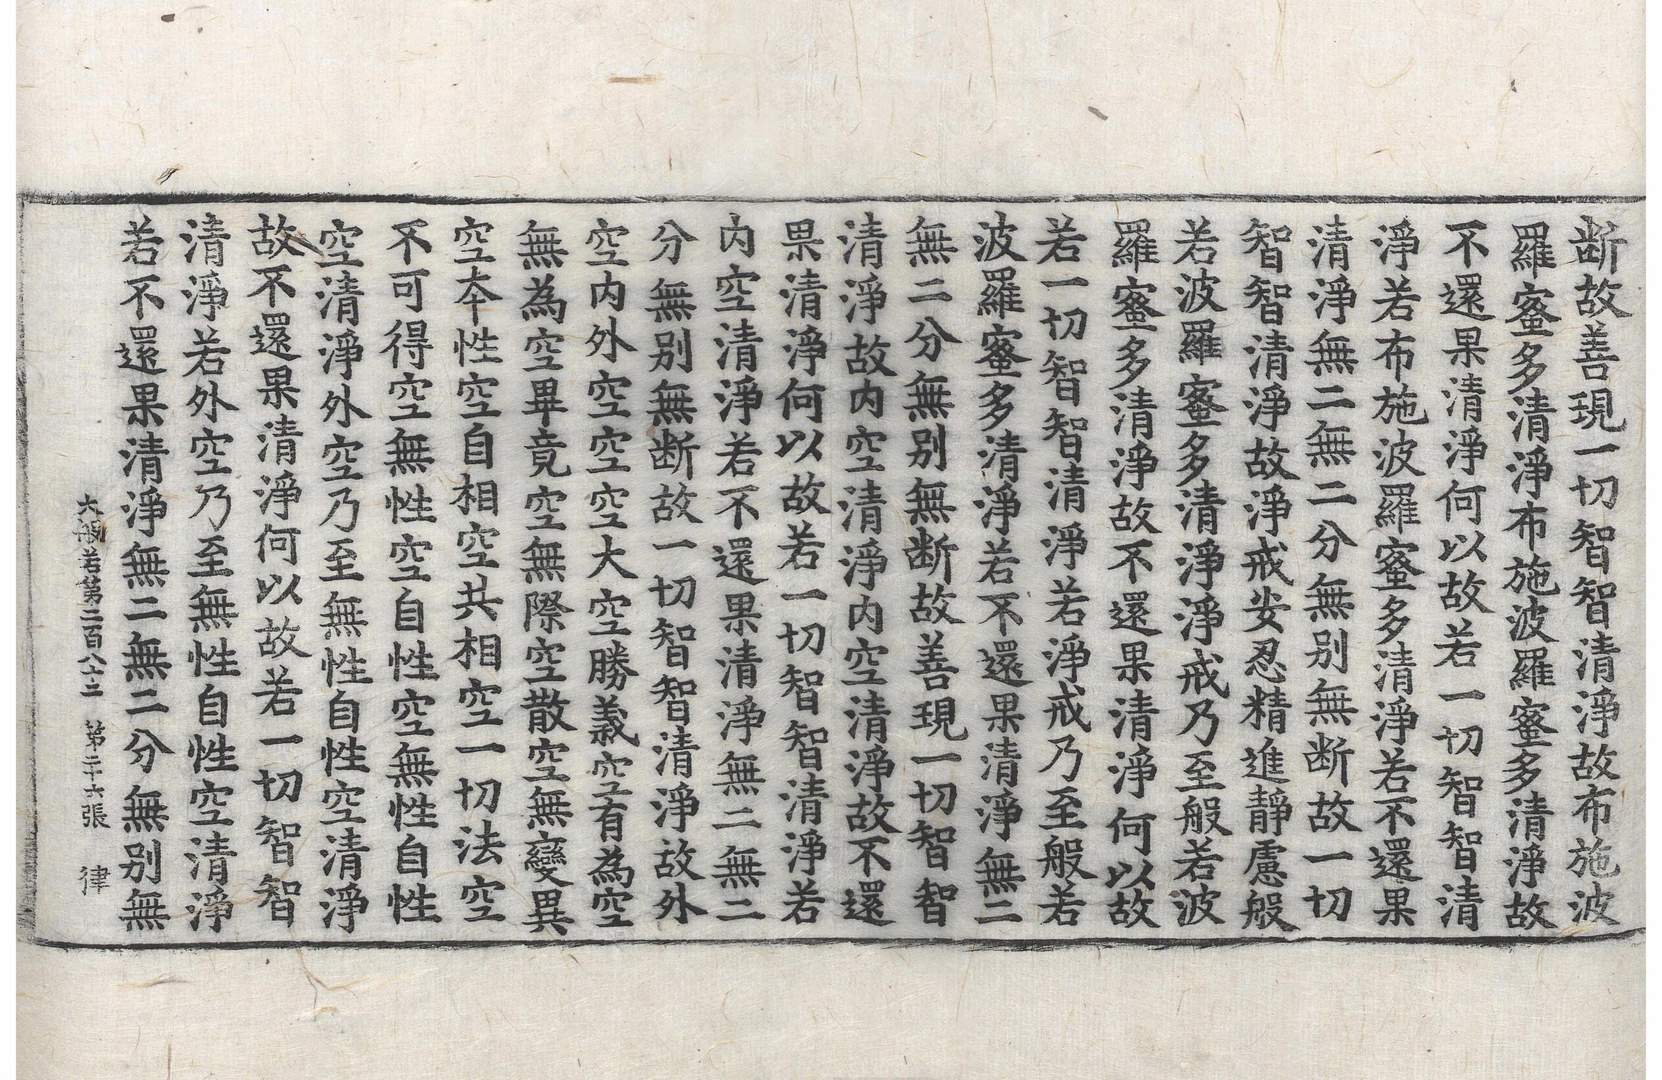 断故善現一切智智清淨故布施波
羅蜜多清淨布施波羅蜜多清淨故
不還果清淨何以故若一切智智清
淨若布施波羅蜜多清淨若不還果
清淨無二無二分無別無断故一切
智智清淨故淨戒安忍精進靜慮般
若波羅蜜多清淨淨戒乃至般若波
羅蜜多清淨故不還果清淨何以故
若一切智智清淨若淨戒乃至般若
波羅蜜多清淨若不還果清淨無二
無二分無別無断故善現一切智智
清淨故内空清淨内空清淨故不還
果清淨何以故若一切智智清淨若
内空清淨若不還果清淨無二無二
分無別無断故一切智智清淨故外
空内外空空空大空勝義空有為空
無為空畢竟空無際空散空無變異
空本性空自相空共相空一切法空
不可得空無性空自性空無性自性
空清淨外空乃至無性自性空清淨
故不還果清淨何以故若一切智智
清淨若外空乃至無性自性空清淨
若不還果清淨無二無二分無別無
大般若第二百八十二 第二十六張 律